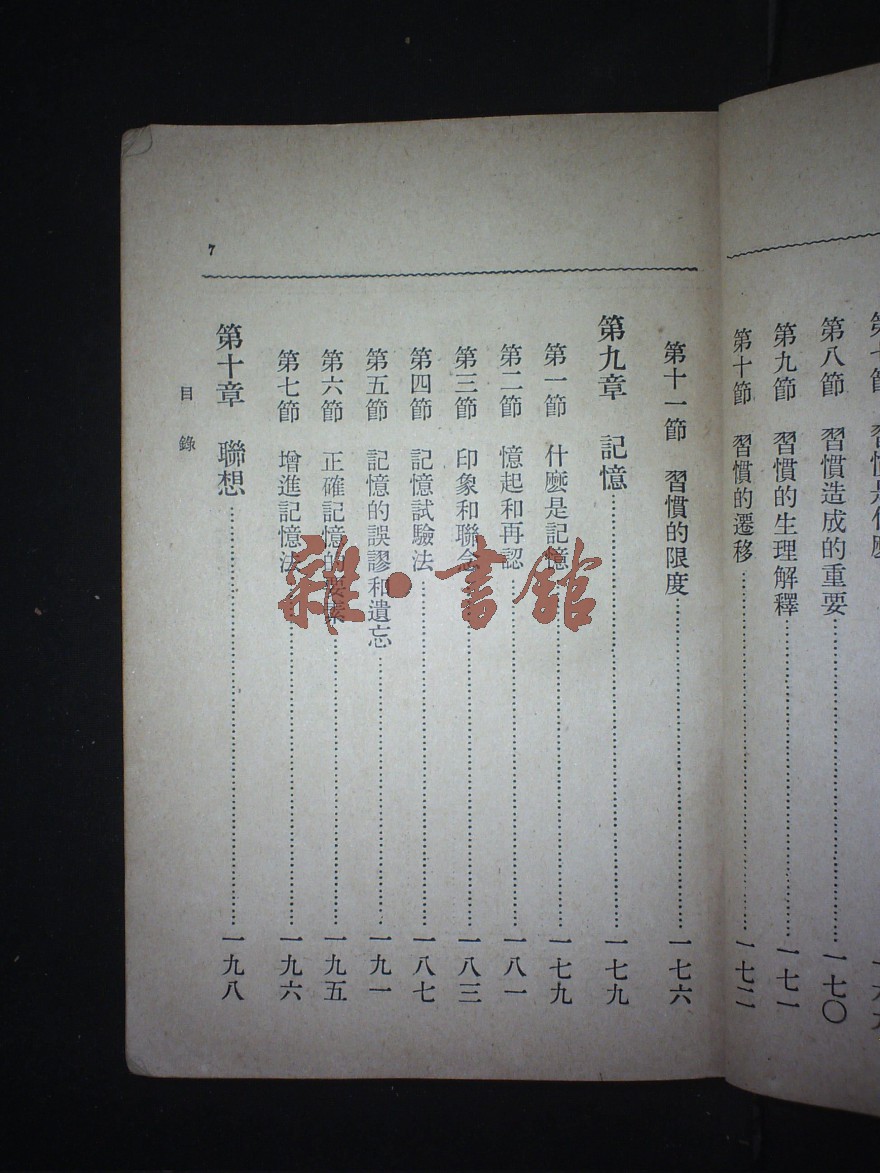 第八節 習慣造成的重要…………一七〇
第九節 習慣的生理解釋…………一七一
第十節 習慣的遷移…………一七二
7
第十一節 習慣的限度…………一七六
第九章 記憶…………一七九
第一節 什麽是記憶…………一七九
第二節 憶起和再認…………一八一
第三節 印象和聯念…………一八三
第四節 記憶試驗法…………一八七
第五節 記憶的誤謬和遺忘…………一九一
第六節 正確記憶的要素…………一九五
第七節 增進記憶法…………一九六
第十章 聯想…………一九八
目錄
雜·書館